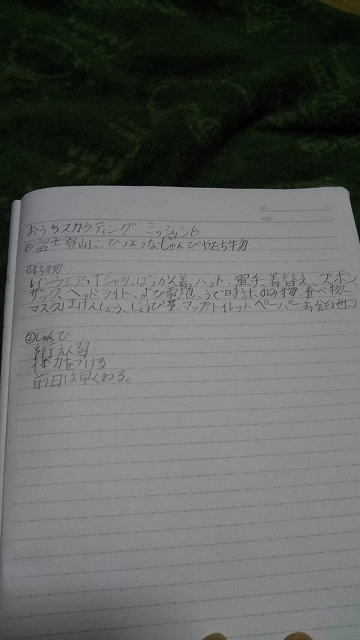 おうちスカウティング ミッション6
富士登山に、ひつようなじゅんびやもち物
①もち物
レインウエア、Tシャツ、ぼうかん着、ハット、軍手、着替え、ズボン
ザック、ヘッドライト、よび電池、うで時計、のみ物、食べ物
マスク、しょうどく、マップ、トイレットペーパー、お金
②じゅんび
歩行れん習
体力をつける
前日は早くねる。